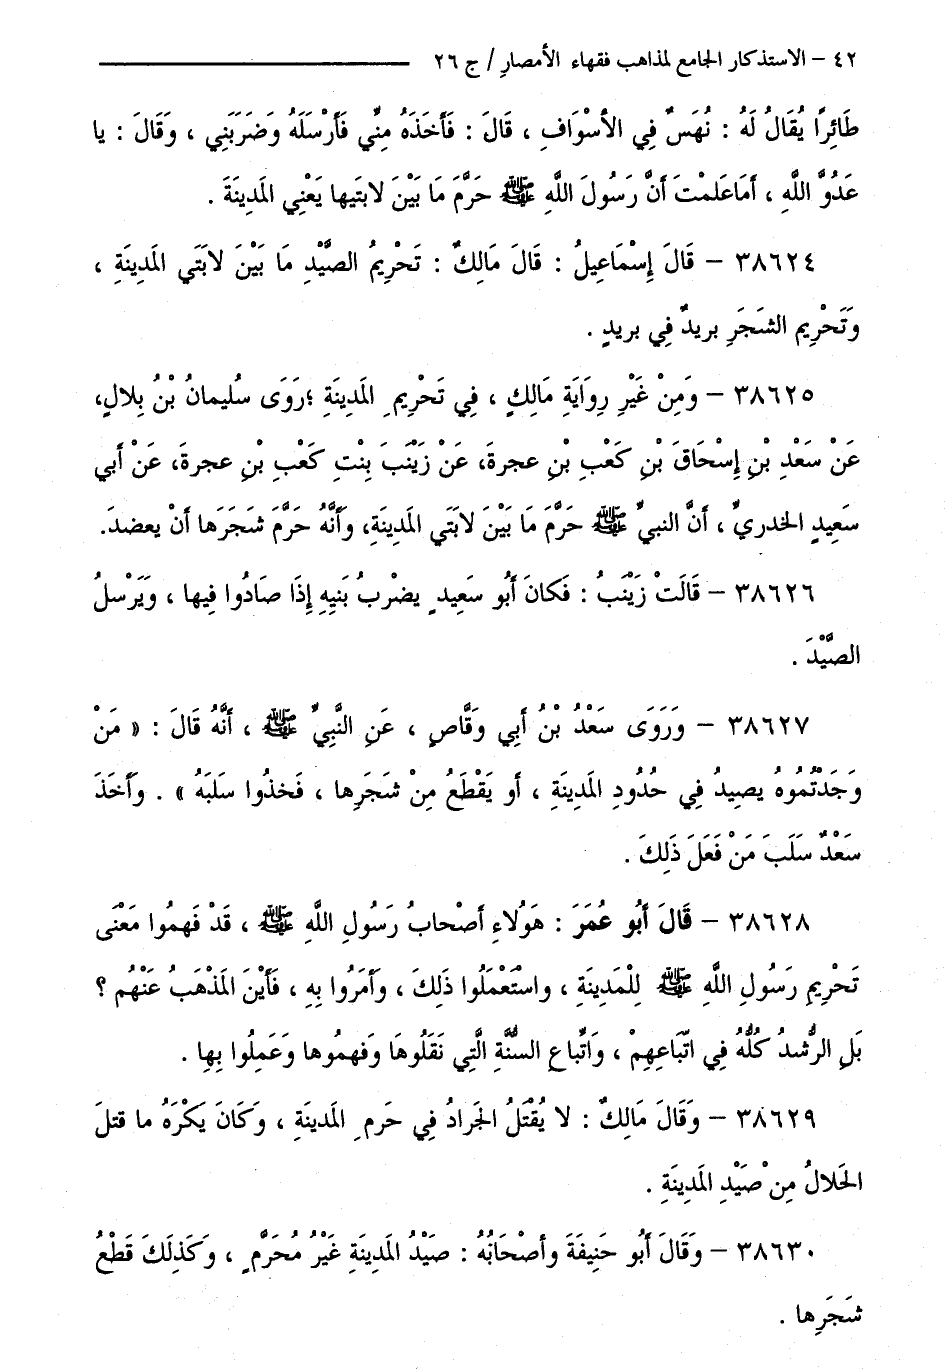 ٤٢ – الاستذكار الجامع لمذاهب فقهاء الأمصارِ / ج ٢٦
طَائِرًا يُقَالُ لَهُ : نُهَسٌ فِي الأسْوَافِ ، قَالَ : فَأَخَذَهُ مِنِّي فَأَرْسَلَهُ وَضَرَبَنِي ، وَقَالَ : يا
عَدُوَّ اللَّهِ ، أمَاعَلمْتَ أنَّ رَسُولَ اللَّهِ ﷺ حَرَّمَ مَا بَيْنَ لابتَيها يَعْنِي المَدينَةَ .
٣٨٦٢٤ – قَالَ إِسْمَاعِيلُ : قَالَ مَالِكٌ : تَحْرِيمُ الصَّيْدِ مَا بَيْنَ لابَتَي المَدِينَةِ ،
وَتَحْرِيم الشَجَرِ بريدٌ فِي بريدٍ .
٣٨٦٢٥ – وَمِنْ غَيْرِ رِوَايَةِ مَالِكٍ ، فِي تَحْرِيمِ المَدِينَةِ ؛رَوَى سُليمانُ بْنُ بِلالٍ،
عَنْ سَعْدِ بْنِ إِسْحَاقَ بْنِ كَعْبِ بْنِ عجرةَ، عَنْ زَيْنَبَ بِنْتِ كَعْبِ بْنِ عجرةَ، عَنْ أبي
سَعِيدٍ الخدريِّ ، أنَّ النبيَّ ﷺ حَرَّمَ مَا بَيْنَ لابَتَي المَدِينَةِ، وَأنَّهُ حَرَّمَ شَجَرَها أنْ يعضدَ.
٣٨٦٢٦ – قَالَتْ زَيْنَبُ : فَكانَ أبُو سَعِيدٍ يضْربُ بَنيهِ إِذَا صَادُوا فِيها ، وَيَرْسلُ
الصَّيْدَ .
٣٨٦٢٧ – وَرَوَى سَعْدُ بْنُ أبي وَقَّاصٍ ، عَنِ النَّبِيِّ ﷺ ، أنَّهُ قَالَ : « مَنْ
وَجَدْتُمُوهُ يصِيدُ فِي حُدُودِ المَدِينَةِ ، أو يَقْطَعُ مِنْ شَجَرِها ، فَخذُوا سلَبَهُ » . وأخَذَ
سَعْدٌ سَلَبَ مَنْ فَعَلَ ذَلِكَ .
٣٨٦٢٨ – قَالَ أَبُو عُمَرَ : هَوُلاءِ أصْحابُ رَسُولِ اللَّهِ ﷺ ، قَدْ فَهِمُوا مَعْنَى
تَحْرِيمِ رَسُولِ اللَّهِ ﷺ لِلْمَدِينَةِ ، واسْتَعْمَلُوا ذَلِكَ ، وأمَرُوا بِهِ ، فَأَيْنَ المَذْهَبُ عَنْهُم ؟
بَلِ الرُّشدُ كُلُّهُ فِي اتِّبَاعِهِمْ ، وَاتِّباعِ السُّنَّةِ الَّتِي نَقَلُوهَا وَفهمُوها وَعَمِلُوا بِهِا .
٣٨٦٢٩ – وَقَالَ مَالِكٌ : لا يُقْتَلُ الجَرادُ فِي حَرمِ المَدينَةِ ، وَكَانَ يَكْرَهُ ما قتلَ
الحَلالُ مِنْ صَيْدِ المَدِينَةِ .
٣٨٦٣٠ – وَقَالَ أبُو حَنِيفَةَ وأصْحَابُهُ : صَيْدُ المَدِينَةِ غَيْرُ مُحَرَّمٍ ، وَكَذلِكَ قَطْعُ
شَجَرِها .